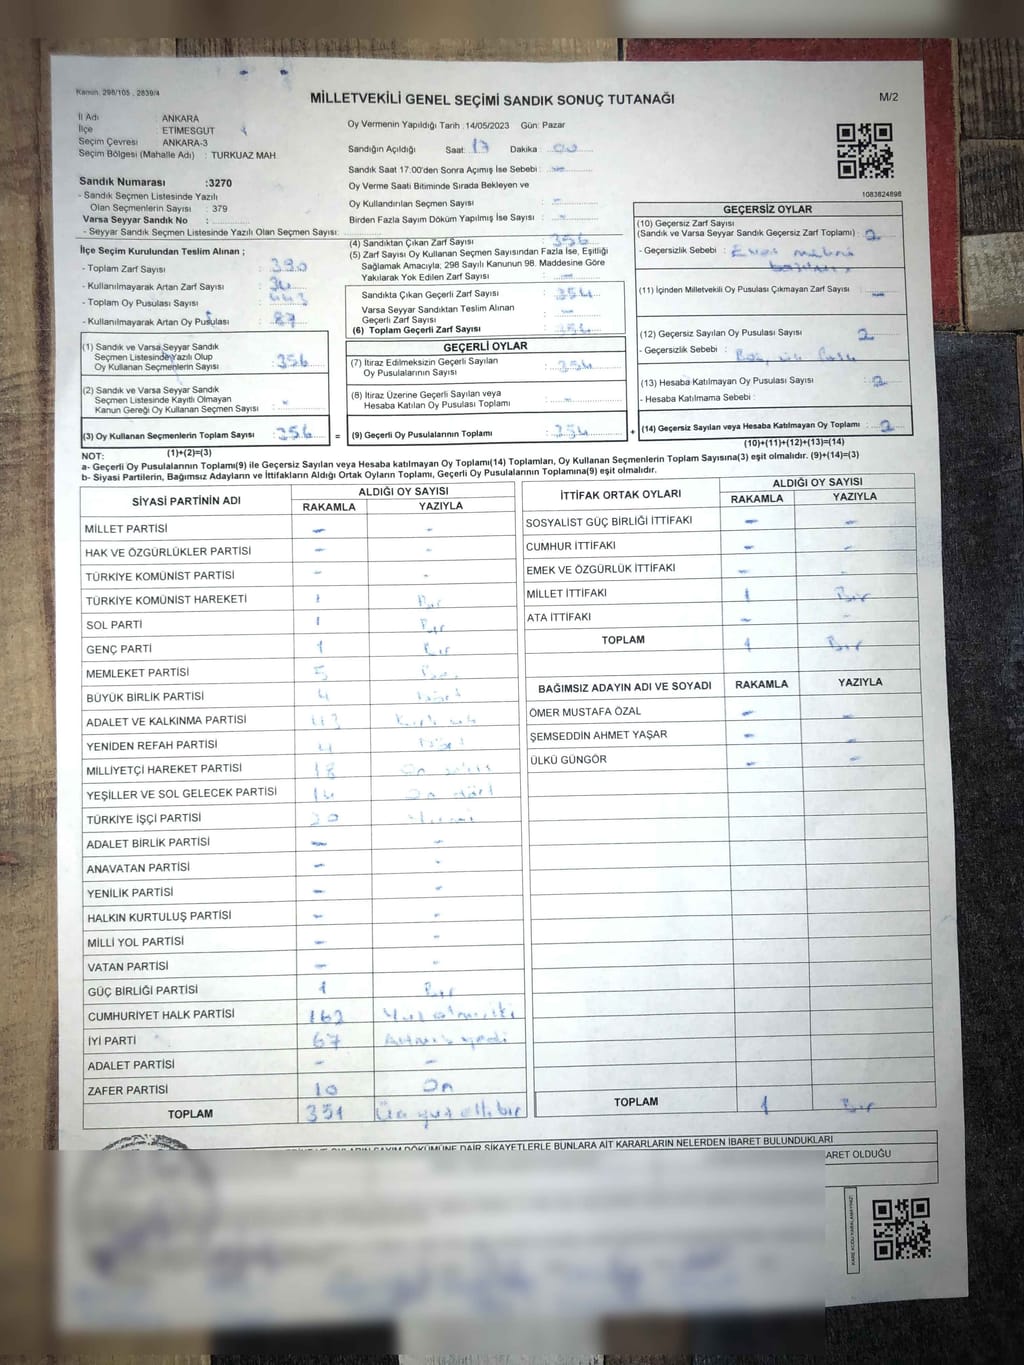 Kanun. 298/105 , 2839/4
MİLLETVEKİLİ GENEL SEÇİMİ SANDIK SONUÇ TUTANAĞI
M/2
İl Adı : ANKARA
İlçe : ETİMESGUT
Seçim Çevresi : ANKARA-3
Seçim Bölgesi (Mahalle Adı) : TURKUAZ MAH.
Oy Vermenin Yapıldığı Tarih :14/05/2023 Gün: Pazar
Sandığın Açıldığı Saat: 17 Dakika : 00
Sandık Saat 17.00'den Sonra Açımış İse Sebebi : -
Oy Verme Saati Bitiminde Sırada Bekleyen ve
Oy Kullandırılan Seçmen Sayısı : -
Birden Fazla Sayım Döküm Yapılmış İse Sayısı : -
1083824898
Sandık Numarası :3270
- Sandık Seçmen Listesinde Yazılı
Olan Seçmenlerin Sayısı : 379
Varsa Seyyar Sandık No :
- Seyyar Sandık Seçmen Listesinde Yazılı Olan Seçmen Sayısı:
İlçe Seçim Kurulundan Teslim Alınan ;
- Toplam Zarf Sayısı : 390
- Kullanılmayarak Artan Zarf Sayısı : 34
- Toplam Oy Pusulası Sayısı : 443
- Kullanılmayarak Artan Oy Pusulası : 87
(1) Sandık ve Varsa Seyyar Sandık
Seçmen Listesinde Yazılı Olup
Oy Kullanan Seçmenlerin Sayısı : 356
(2) Sandık ve Varsa Seyyar Sandık
Seçmen Listesinde Kayıtlı Olmayan
Kanun Gereği Oy Kullanan Seçmen Sayısı : -
(3) Oy Kullanan Seçmenlerin Toplam Sayısı : 356
(1)+(2)=(3)
(4) Sandıktan Çıkan Zarf Sayısı : 356
(5) Zarf Sayısı Oy Kullanan Seçmen Sayısından Fazla İse, Eşitliği
Sağlamak Amacıyla, 298 Sayılı Kanunun 98. Maddesine Göre
Yakılarak Yok Edilen Zarf Sayısı : -
Sandıkta Çıkan Geçerli Zarf Sayısı : 354
Varsa Seyyar Sandıktan Teslim Alınan
Geçerli Zarf Sayısı : -
(6) Toplam Geçerli Zarf Sayısı : 354
GEÇERLİ OYLAR
(7) İtiraz Edilmeksizin Geçerli Sayılan
Oy Pusulalarının Sayısı : 354
(8) İtiraz Üzerine Geçerli Sayılan veya
Hesaba Katılan Oy Pusulası Toplamı : -
= (9) Geçerli Oy Pusulalarının Toplamı : 354
GEÇERSİZ OYLAR
(10) Geçersiz Zarf Sayısı
(Sandık ve Varsa Seyyar Sandık Geçersiz Zarf Toplamı) : 2
- Geçersizlik Sebebi :
(11) İçinden Milletvekili Oy Pusulası Çıkmayan Zarf Sayısı : -
(12) Geçersiz Sayılan Oy Pusulası Sayısı : 2
- Geçersizlik Sebebi :
(13) Hesaba Katılmayan Oy Pusulası Sayısı : 2
- Hesaba Katılmama Sebebi :
+ (14) Geçersiz Sayılan veya Hesaba Katılmayan Oy Toplamı : 2
(10)+(11)+(12)+(13)=(14)
NOT:
a- Geçerli Oy Pusulalarının Toplamı(9) ile Geçersiz Sayılan veya Hesaba katılmayan Oy Toplamı(14) Toplamları, Oy Kullanan Seçmenlerin Toplam Sayısına(3) eşit olmalıdır. (9)+(14)=(3)
b- Siyasi Partilerin, Bağımsız Adayların ve İttifakların Aldığı Ortak Oyların Toplamı, Geçerli Oy Pusulalarının Toplamına(9) eşit olmalıdır.
SİYASİ PARTİNİN ADI ALDIĞI OY SAYISI
RAKAMLA YAZIYLA
MİLLET PARTİSİ - -
HAK VE ÖZGÜRLÜKLER PARTİSİ - -
TÜRKİYE KOMÜNİST PARTİSİ - -
TÜRKİYE KOMÜNİST HAREKETİ 1 Bir
SOL PARTİ 1 Bir
GENÇ PARTİ 1 Bir
MEMLEKET PARTİSİ 5
BÜYÜK BİRLİK PARTİSİ 4 Dört
ADALET VE KALKINMA PARTİSİ
YENİDEN REFAH PARTİSİ 4 Dört
MİLLİYETÇİ HAREKET PARTİSİ 18 On sekiz
YEŞİLLER VE SOL GELECEK PARTİSİ 14 On dört
TÜRKİYE İŞÇİ PARTİSİ 20 Yirmi
ADALET BİRLİK PARTİSİ - -
ANAVATAN PARTİSİ - -
YENİLİK PARTİSİ - -
HALKIN KURTULUŞ PARTİSİ - -
MİLLİ YOL PARTİSİ - -
VATAN PARTİSİ - -
GÜÇ BİRLİĞİ PARTİSİ 1 Bir
CUMHURİYET HALK PARTİSİ 162 Yüz altmış iki
İYİ PARTİ 67 Altmış yedi
ADALET PARTİSİ - -
ZAFER PARTİSİ 10 On
TOPLAM 351 Üç yüz elli bir
İTTİFAK ORTAK OYLARI ALDIĞI OY SAYISI
RAKAMLA YAZIYLA
SOSYALİST GÜÇ BİRLİĞİ İTTİFAKI - -
CUMHUR İTTİFAKI - -
EMEK VE ÖZGÜRLÜK İTTİFAKI - -
MİLLET İTTİFAKI 1 Bir
ATA İTTİFAKI - -
TOPLAM 1 Bir
BAĞIMSIZ ADAYIN ADI VE SOYADI RAKAMLA YAZIYLA
ÖMER MUSTAFA ÖZAL - -
ŞEMSEDDİN AHMET YAŞAR - -
ÜLKÜ GÜNGÖR - -
TOPLAM 1 Bir
SAYIM DÖKÜMÜNE DAİR ŞİKAYETLERLE BUNLARA AİT KARARLARIN NELERDEN İBARET BULUNDUKLARI
ARET OLDUĞU